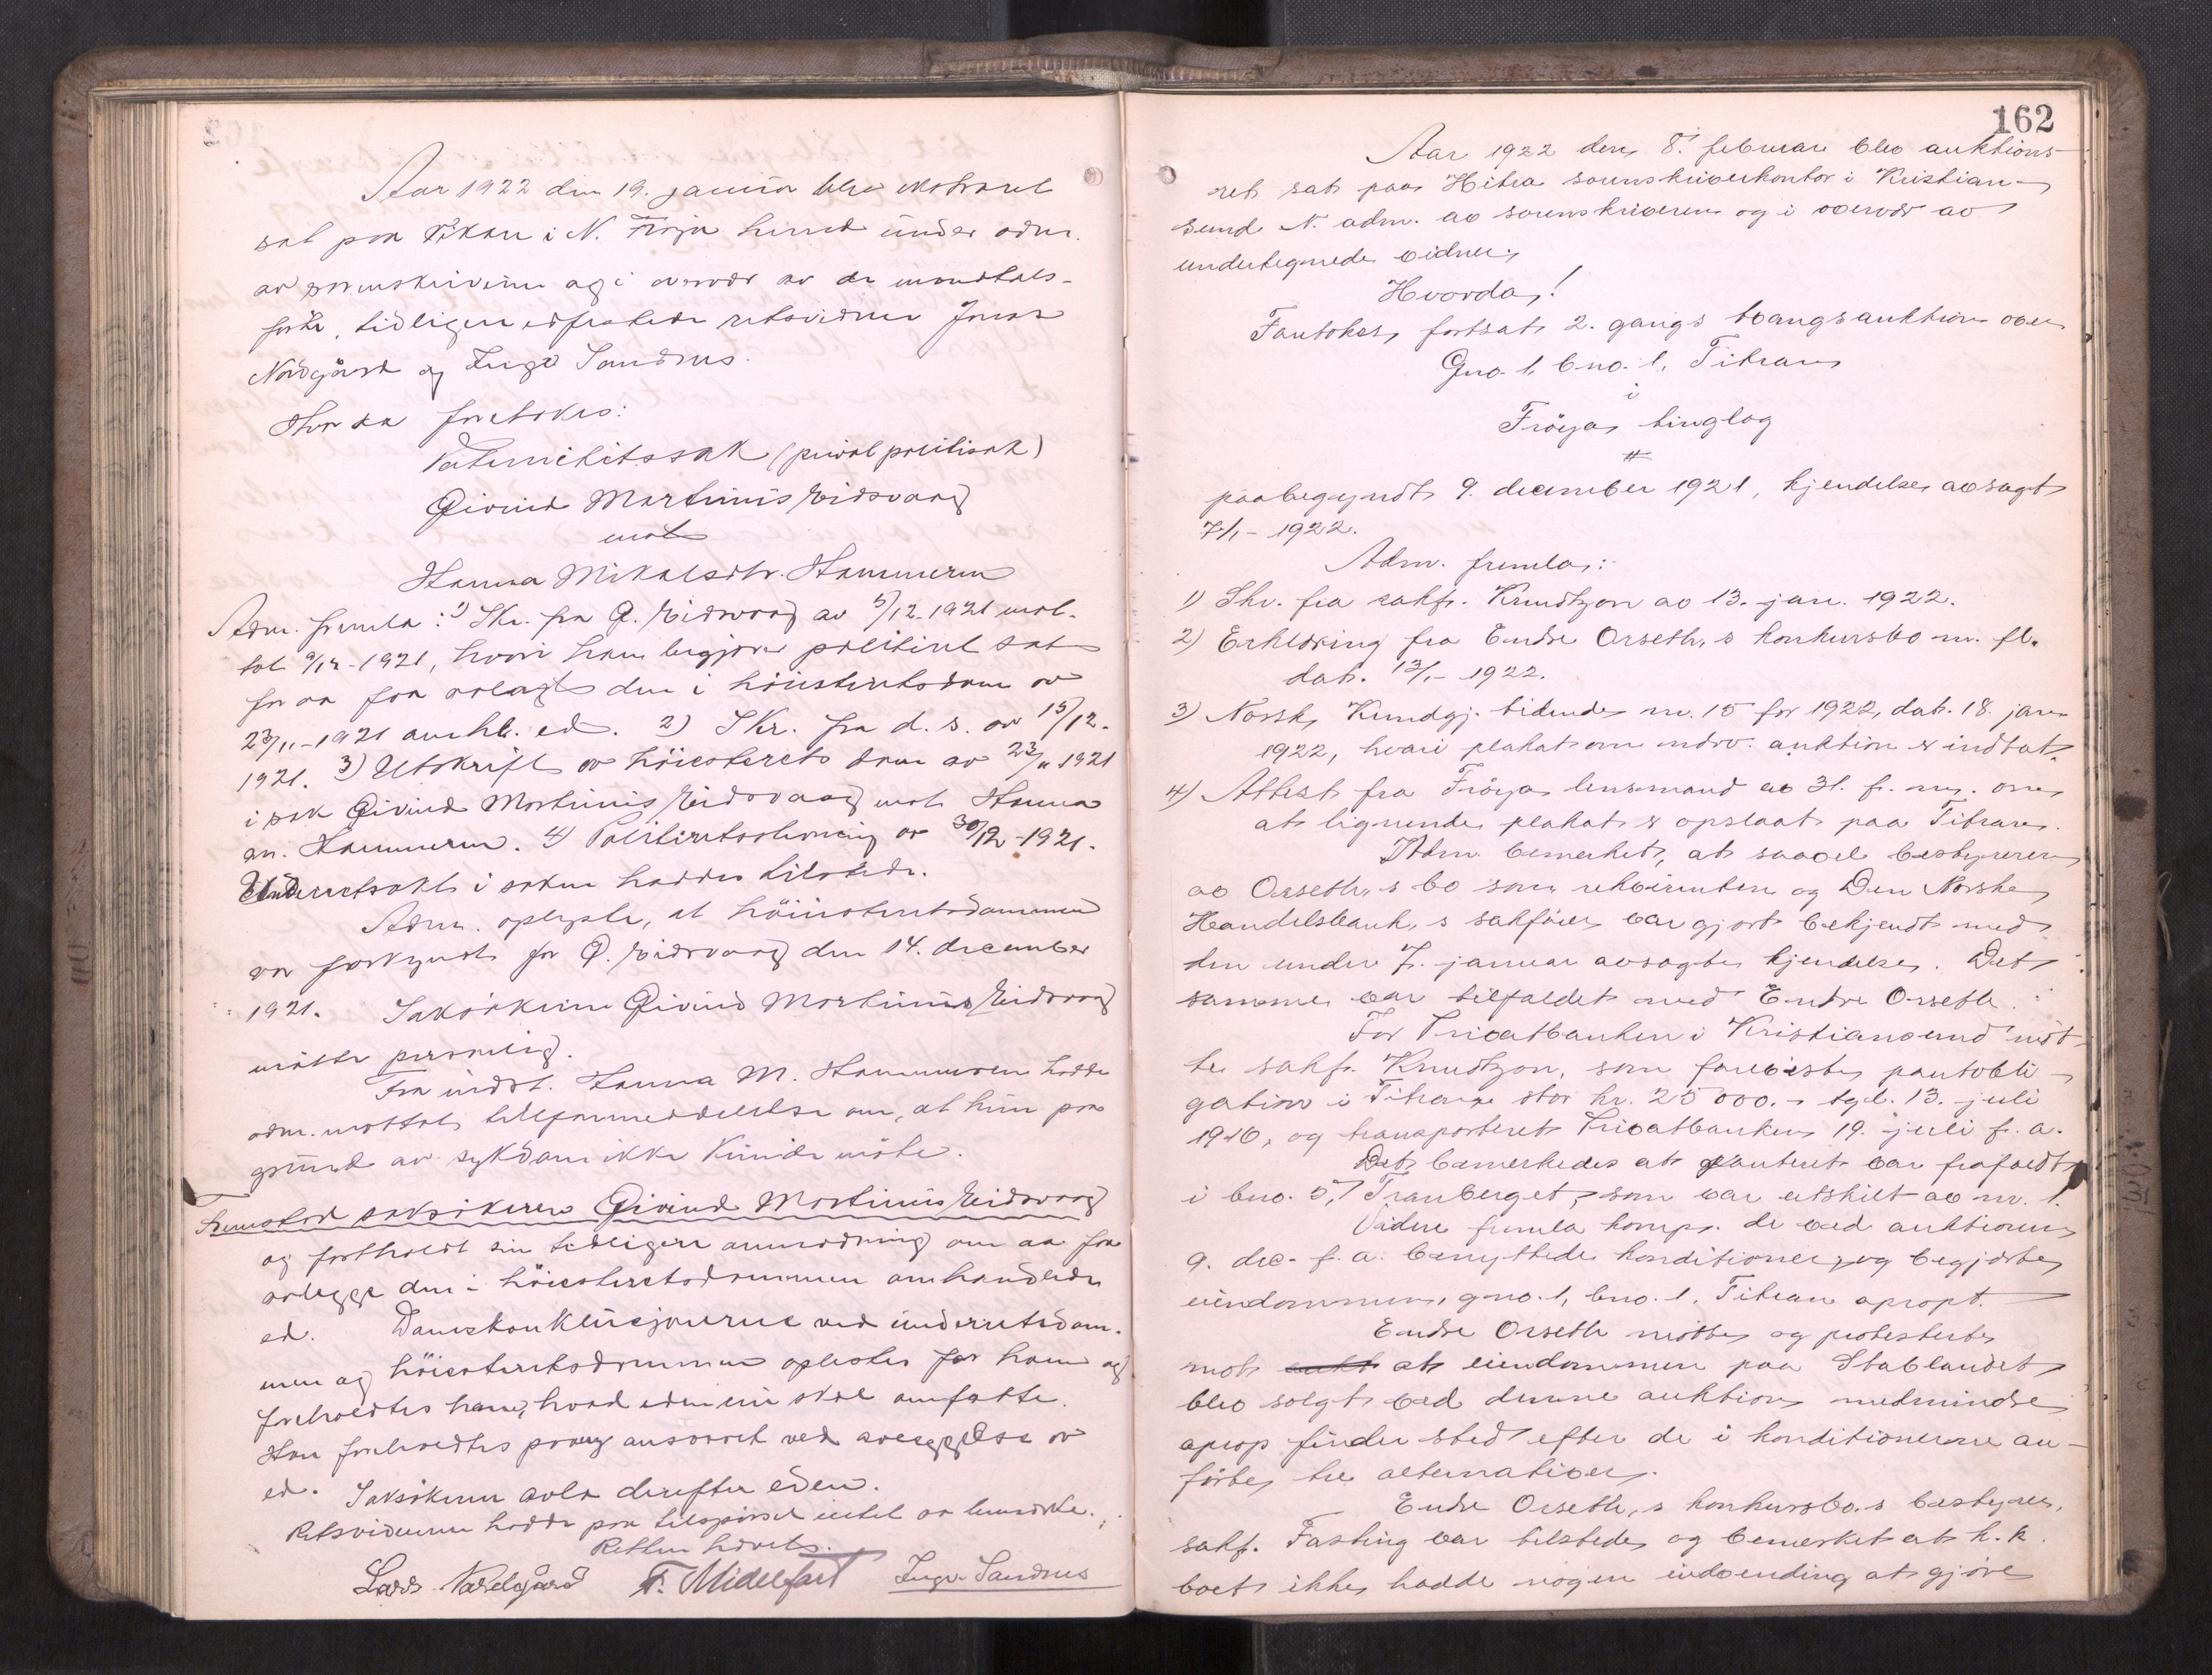 Aar 1922 den 19. januar blev ekstraret
sat paa Sikan i N. Fröja herred under adm.
av sorenskriveren og i overvær av de mandtals-
förte, tidligere edfæstede retsvidner Jonas
Nordgård og Inge Sandnes.
Hvorda foretokes:
Paternitetssak (privat politisak)
Øivind Martinius Eidsvaag
mot
Hanna Mikalsdtr. Hammeren
Adm. fremla: 1) Skr. fra Ø. Eidsvaag av 5/12-1921 mot-
tat 9/12-1921, hvori han begjærer politiret sat
for aa faa avlagt den i höiesteretsdom av
23/11-1921 omhl. ed. 2) Skr. fra d. s. av 15/12-
1921. 3) Utskrift av höiesterets dom av 23/11 1921
i sak Øivind Martinius Eidsvaag mot Hanna
M. Hammeren. 4) Politiretsstevning av 30/12-1921.
Underretsakt i saken haddes tilstede.
Adm. oplyste, at höiesteretsdommen
var forkyndt for Ø. Eidsvaag den 14. december
1921. Saksökeren Øivind Martinius Eidsvaag
mötte personlig.
Fra indst. Hanna M. Hammeren hadde
adm. mottat telefonmeddelelse om, at hun paa
grund av sykdom ikke kunde möte.
Fremstod saksökeren Øivind Martinius Eidsvaag
og fastholdt sin tidligere anmodning om aa faa
avlegge den i höiesteretsdommen omhandlede
ed. Domskonklusjonerne ved underretsdom-
men og höiesteretsdommen oplæstes for ham og
foreholdtes ham, hvad eden skal omfatte.
Han foreholdtes ansvaret ved avleggelse av
ed. Saksökeren avla derefter eden.
Retsvidnerne hadde paa tilspörsel intet aa bemerke.
Retten hævet.
Lars Nordgård F. Midelfart Inge Sandnes
162
Aar 1922 den 8. februar blev auktions-
ret sat paa Hitra sorenskriverkontor i Kristian-
sund N. adm. av sorenskriveren og i overvær av
undertegnede vidner,
Hvorda!
Foretokes fortsat 2. gangs tvangsauktion over
Gno. 1, bno. 1, Titran
i
Fröya tinglag
paabegyndt 9. december 1921, kjendelse avsagt
7/1-1922.
Adm. fremla:
1) Skr. fra sakf. Knudtzon av 13. jan. 1922.
2) Erklæring fra Endre Orseth,s konkursbo m. fl.
dat. 13/1-1922.
3) Norsk Kundgj. tidende nr. 15 for 1922, dat. 18. jan
1922, hvori plakat om nærv. auktion er indtat.
4) Attest fra Fröya lensmand av 31. f. m. om
at lignende plakat er opslaat paa Titran.
Adm. bemerket, at saavel bestyreren
av Orseth,s bo som rekvirenten og Den Norske
Handelsbank,s sakförer var gjort bekjendt med
den under 7. januar avsagte kjendelse. Det
samme var tilfældet med Endre Orseth.
For Privatbanken i Kristiansund möt-
te sakf. Knudtzon, som foreviste pantobli-
gation i Titran stor kr. 25 000.- tgl. 13. juli
1916, og transporteret Privatbanken 19. juli f. a.
Det bemerkedes at panteret var frafaldt
i bno. 57 Tranberget, som var utskilt av nr. 1.
Videre fremla komp. de ved auktionen
9. dec. f. a. benyttede konditioner, og begjærte
eiendommen, gno. 1, bno. 1. Titran opropt.
Endre Orseth mötte og protesterte
mot at eiendommen paa Stablandet
blev solgt ved denne auktion medmindre
oprop finder sted efter de i konditionerne an-
förte tre alternativer.
Endre Orseth,s konkursbo.s bestyrer,
sakf. Fasting var tilstede og bemerket at k. k.
boet ikke hadde nogen indvending at gjöre